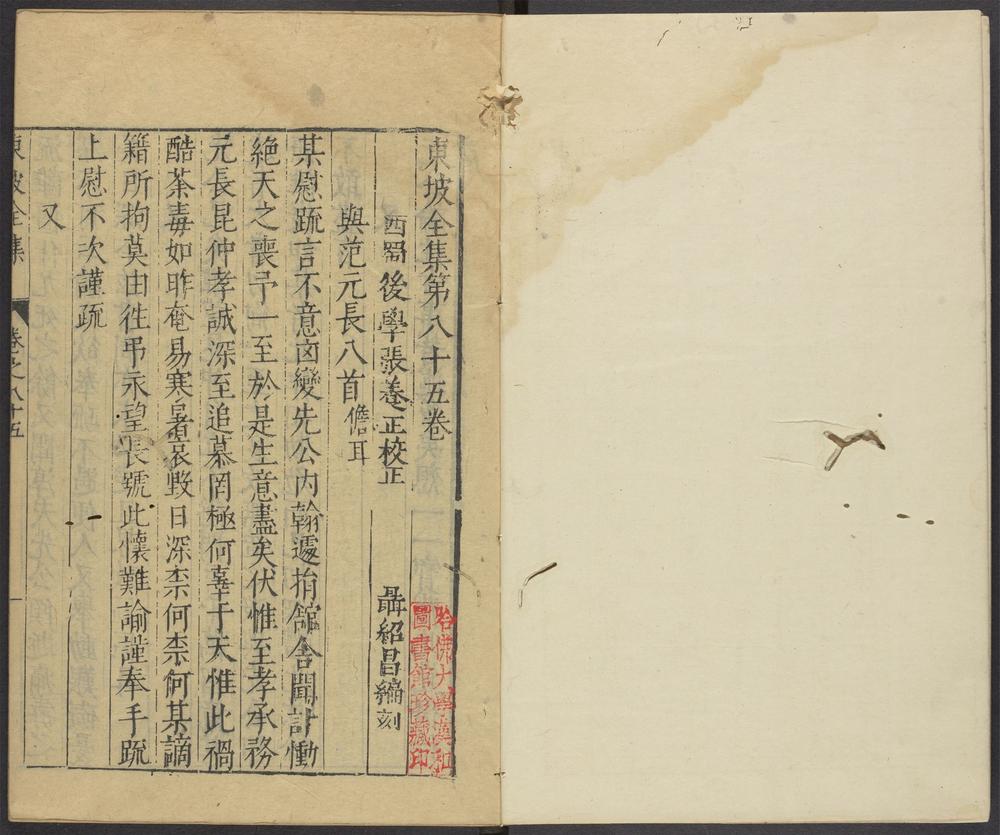 東坡全集第八十五卷
西蜀後學張養正校正
聶紹昌編刻
與范元長八首 儋耳
某慰疏言不意凶變先公內翰遽捐館舍聞訃慟
絶天之喪予一至於是生意盡矣伏惟至孝承務
元長昆仲孝誠深至追慕罔極何辜于天惟此禍
酷荼毒如昨奄易寒暑哀毀日深柰何柰何某謫
籍所拘莫由徃弔永望長號此懷難諭謹奉手疏
上慰不次謹疏
又
東坡全集 卷之八十五
哈佛大學漢和圖書館珍藏印